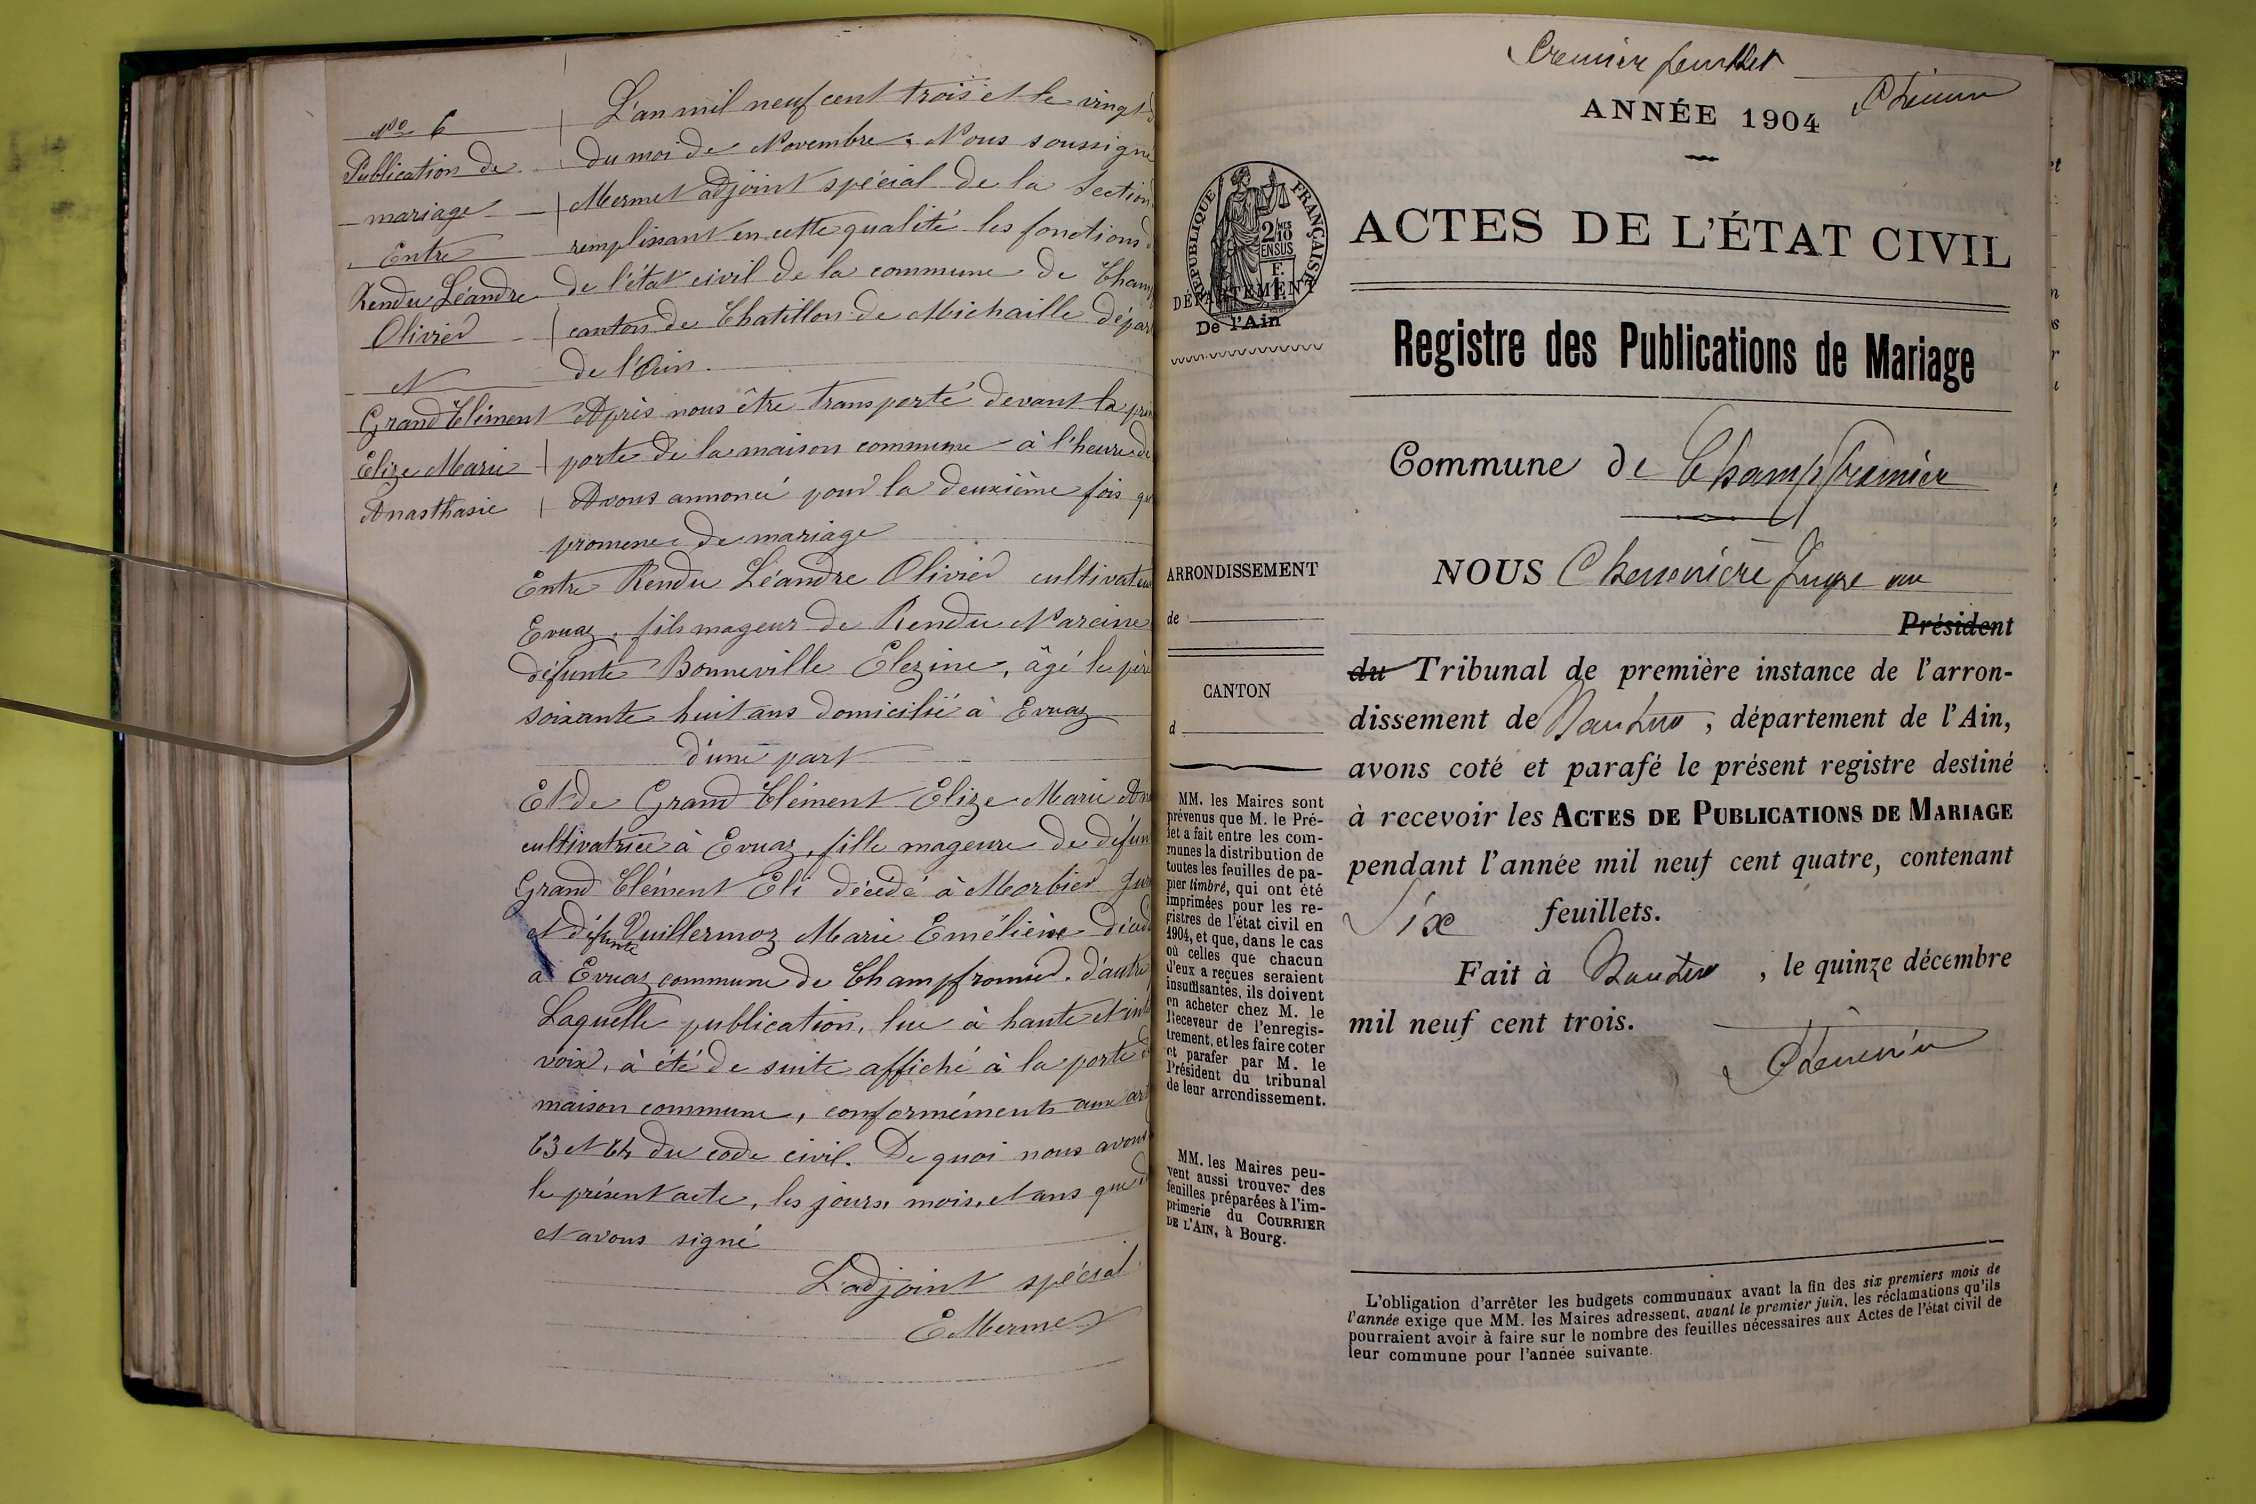 No 6
Publication de
mariage
Entre
Rendu Léandre
Olivier
et
Grand Clément
Elize Marie
Anasthasie
L'an mil neuf cent trois et le vingt
du moi de Novembre. Nous soussigné
Mermet adjoint spécial de la Section
remplissant en cette qualité les fonctions d
de l'état civil de la commune de Champ
canton de Chatillon de Michaille dépar
de l'Ain.
Après nous être transporté devant la prin
porte de la maison commune à l'heure de
Avons annoncé pour la deuxième fois qu
promesse de mariage
Entre Rendu Léandre Olivier cultivateur
Evuaz, fils mageur de Rendu Narcisse
défunte Bonneville Elezine, âgé le père
soixante huit ans domicilié à Evuaz
d'une part
Et de Grand Clément Elize Marie Ana
cultivatrice à Evuaz, fille mageure de défun
Grand Clément Eli décédé à Morbier Jura
et défunte Vuillermoz Marie Eméliene décéd
à Evuaz commune de Champfromier. d'autre
Laquelle publication, lue à haute et inte
voix, à été de suite affiché à la porte d
maison commune, conformément aux art
63 et 64 du code civil. De quoi nous avons
le présent acte, les jours, mois, et ans que d
et avons signé
L'adjoint spécial
E Mermet
Premier feuillet
ANNÉE 1904
RÉPUBLIQUE FRANÇAISE
2/10 EN SUS
DÉPARTEMENT
De l'Ain
ACTES DE L'ÉTAT CIVIL
Registre des Publications de Mariage
Commune de Champfromier
NOUS Chenevière Juge au
Président
du Tribunal de première instance de l'arron-
dissement de Nantua, département de l'Ain,
avons coté et parafé le présent registre destiné
à recevoir les ACTES DE PUBLICATIONS DE MARIAGE
pendant l'année mil neuf cent quatre, contenant
Six feuillets.
Fait à Nantua, le quinze décembre
mil neuf cent trois.
Chenevière
ARRONDISSEMENT
de
CANTON
d
MM. les Maires sont
prévenus que M. le Pré-
fet a fait entre les com-
munes la distribution de
toutes les feuilles de pa-
pier timbré, qui ont été
imprimées pour les re-
gistres de l'état civil en
1904, et que, dans le cas
où celles que chacun
d'eux a reçues seraient
insuffisantes, ils doivent
en acheter chez M. le
Receveur de l'enregis-
trement, et les faire coter
et parafer par M. le
Président du tribunal
de leur arrondissement.
MM. les Maires peu-
vent aussi trouver des
feuilles préparées à l'im-
primerie du COURRIER
DE L'AIN, à Bourg.
L'obligation d'arrêter les budgets communaux avant la fin des six premiers mois de
l'année exige que MM. les Maires adressent, avant le premier juin, les réclamations qu'ils
pourraient avoir à faire sur le nombre des feuilles nécessaires aux Actes de l'état civil de
leur commune pour l'année suivante.